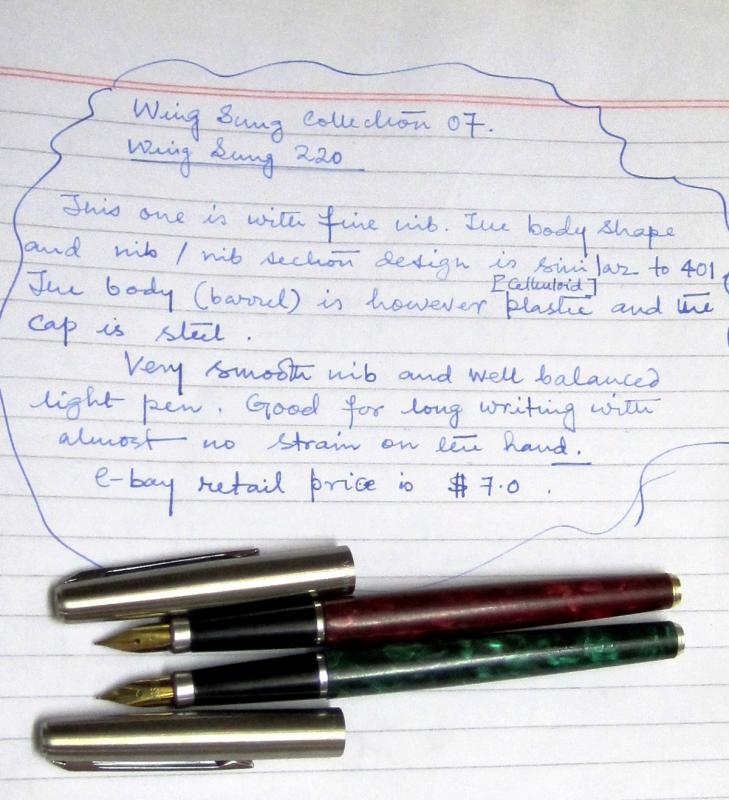 Wing Sung Collection 07.
Wing Sung 220
This one is with fine nib. The body shape
and nib / nib section design is similar to 401.
[Celluloid]
The body (barrel) is however plastic and the
cap is steel.
Very smooth nib and well balanced
light pen. Good for long writing with
almost no strain on the hand.
e-bay retail price is $7.0.